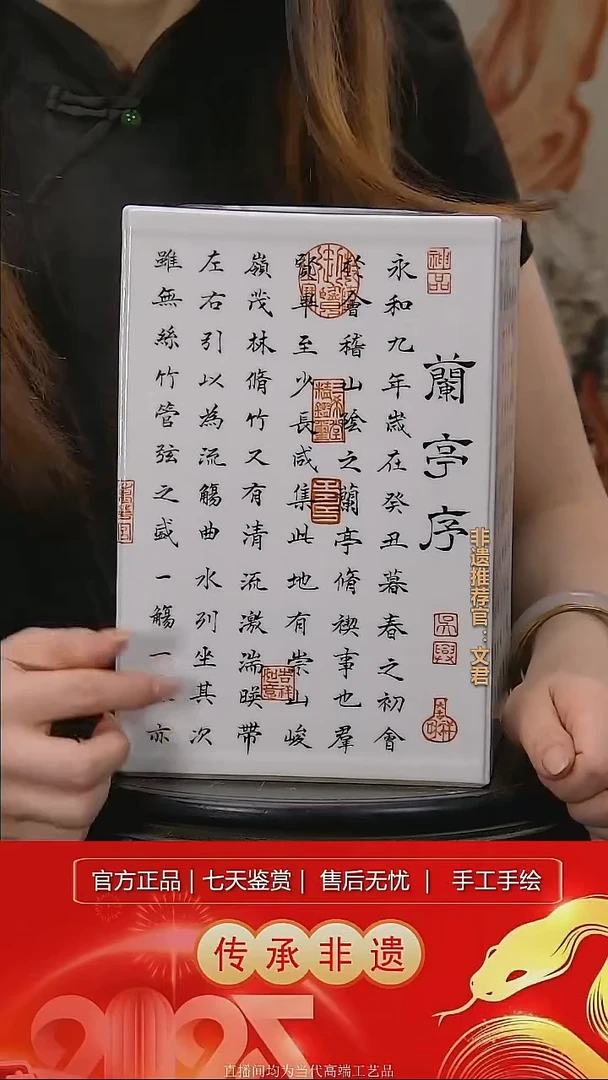 神品
蘭亭序
永和九年歲在癸丑暮春之初會
於會稽山陰之蘭亭脩禊事也羣
賢畢至少長咸集此地有崇山峻
嶺茂林脩竹又有清流激湍暎帶
左右引以為流觴曲水列坐其次
雖無絲竹管弦之盛一觴一亦
吳興
吉祥如意
非遗推荐官：文君
官方正品 | 七天鉴赏 | 售后无忧 | 手工手绘
传承非遗
2025
直播间均为当代高端工艺品